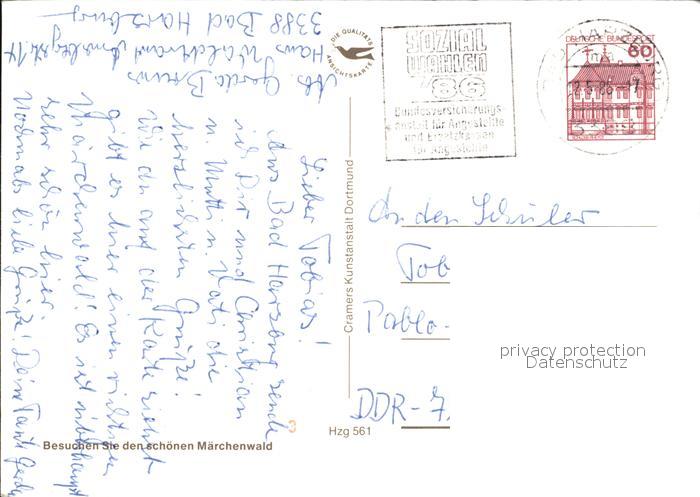 Abs. Gerda Bruns
Haus Waldstrand
3388 Bad Harzburg
Lieber Tobias!
Aus Bad Harzburg sende
ich Dir und Christian
u. Mutti u. Vati die
herzlichsten Grüße!
Wie du auf der Karte siehst
gibt es hier einen richtigen
Märchenwald! Es ist überhaupt
sehr schön hier.
Nochmals liebe Grüße! Deine Tante Gerda
Besuchen Sie den schönen Märchenwald
Hzg 561
3
Cramers Kunstanstalt Dortmund
DIE QUALITÄTS
ANSICHTSKARTE
SOZIAL
WAHLEN
'86
Bundesversicherungs-
anstalt für Angestellte
und Ersatzkassen
für Angestellte
DEUTSCHE BUNDESPOST
60
An den Schüler
Tob
Pablo-
DDR-7.
privacy protection
Datenschutz